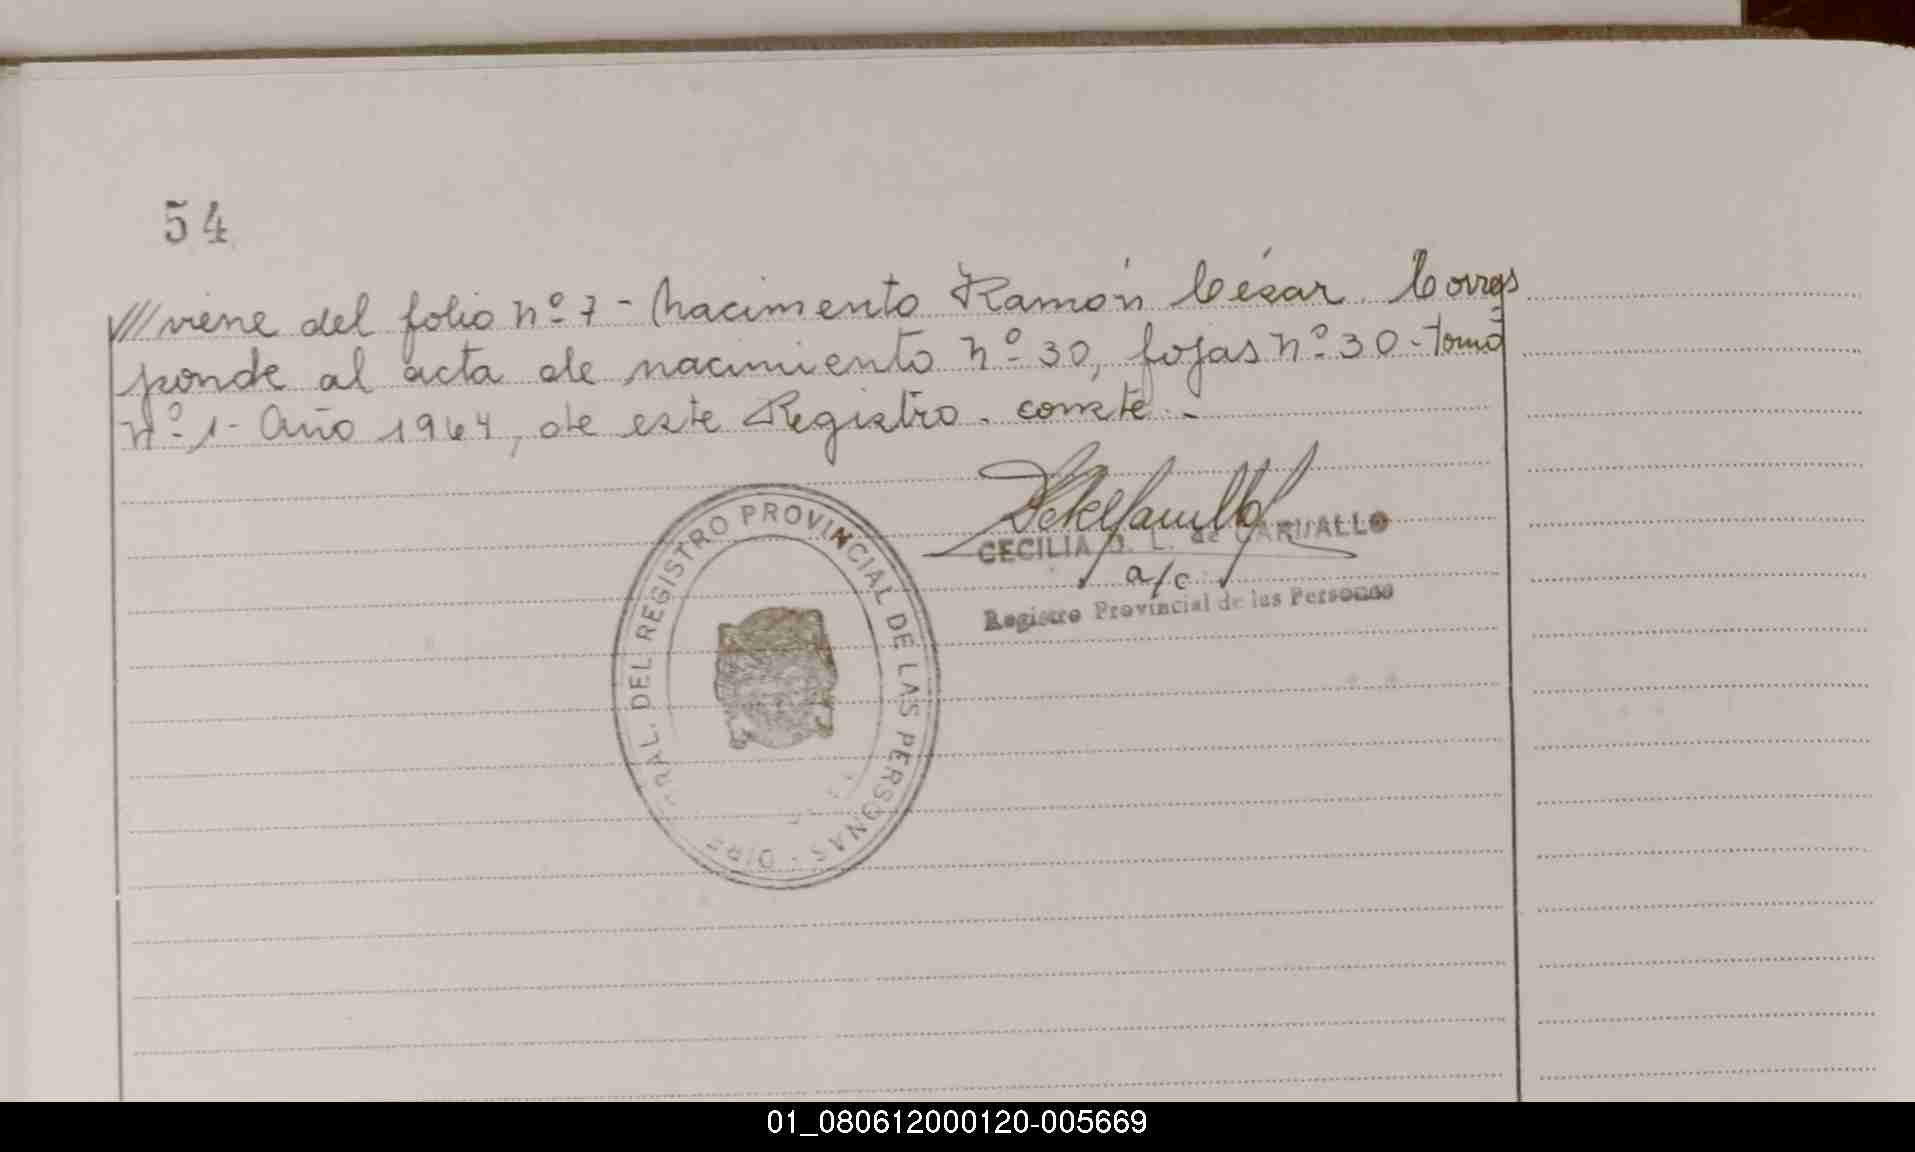 54
///viene del folio Nº 7 - Nacimento Ramón César. Corres
ponde al acta de nacimiento Nº 30, fojas Nº 30 - tomo
Nº 1 - Año 1964, de este Registro. conste. -
CECILIA D. L. de CARUALLO
a/c
Registro Provincial de las Personas
RAL. DEL REGISTRO PROVINCIAL DE LAS PERSONAS - DIRE
01_080612000120-005669